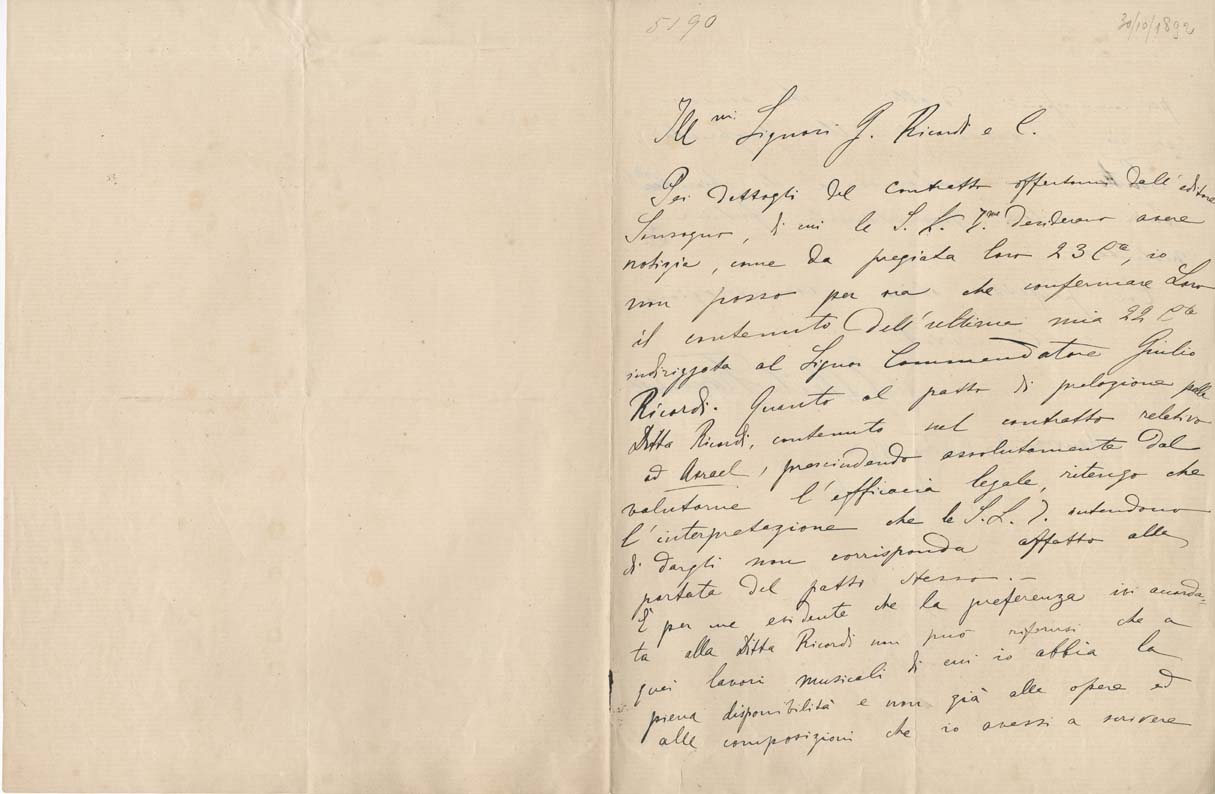 5190
30/10/1892
Ill.mi Signori G. Ricordi e C.
Pei dettagli del contratto offertomi dall'editore
Sonzogno, di cui le S. L. Ime desiderano avere
notizia, come da pregiata loro 23 Cte, io
non posso per ora che confermare Loro
il contenuto dell'ultima mia 22 Cte
indirizzata al Signor Commendatore Giulio
Ricordi. Quanto al patto di prelazione pella
Ditta Ricordi, contenuto nel contratto relativo
ad Asrael, prescindendo assolutamente dal
valutarne l'efficacia legale, ritengo che
l'interpretazione che le S. L. I. intendono
di dargli non corrisponda affatto alla
portata del patto stesso. —
È per me evidente che la preferenza ivi accorda-
ta alla Ditta Ricordi non può riferirsi che a
quei lavori musicali di cui io abbia la
piena disponibilità e non già alle opere ed
alle composizioni che io avessi a scrivere